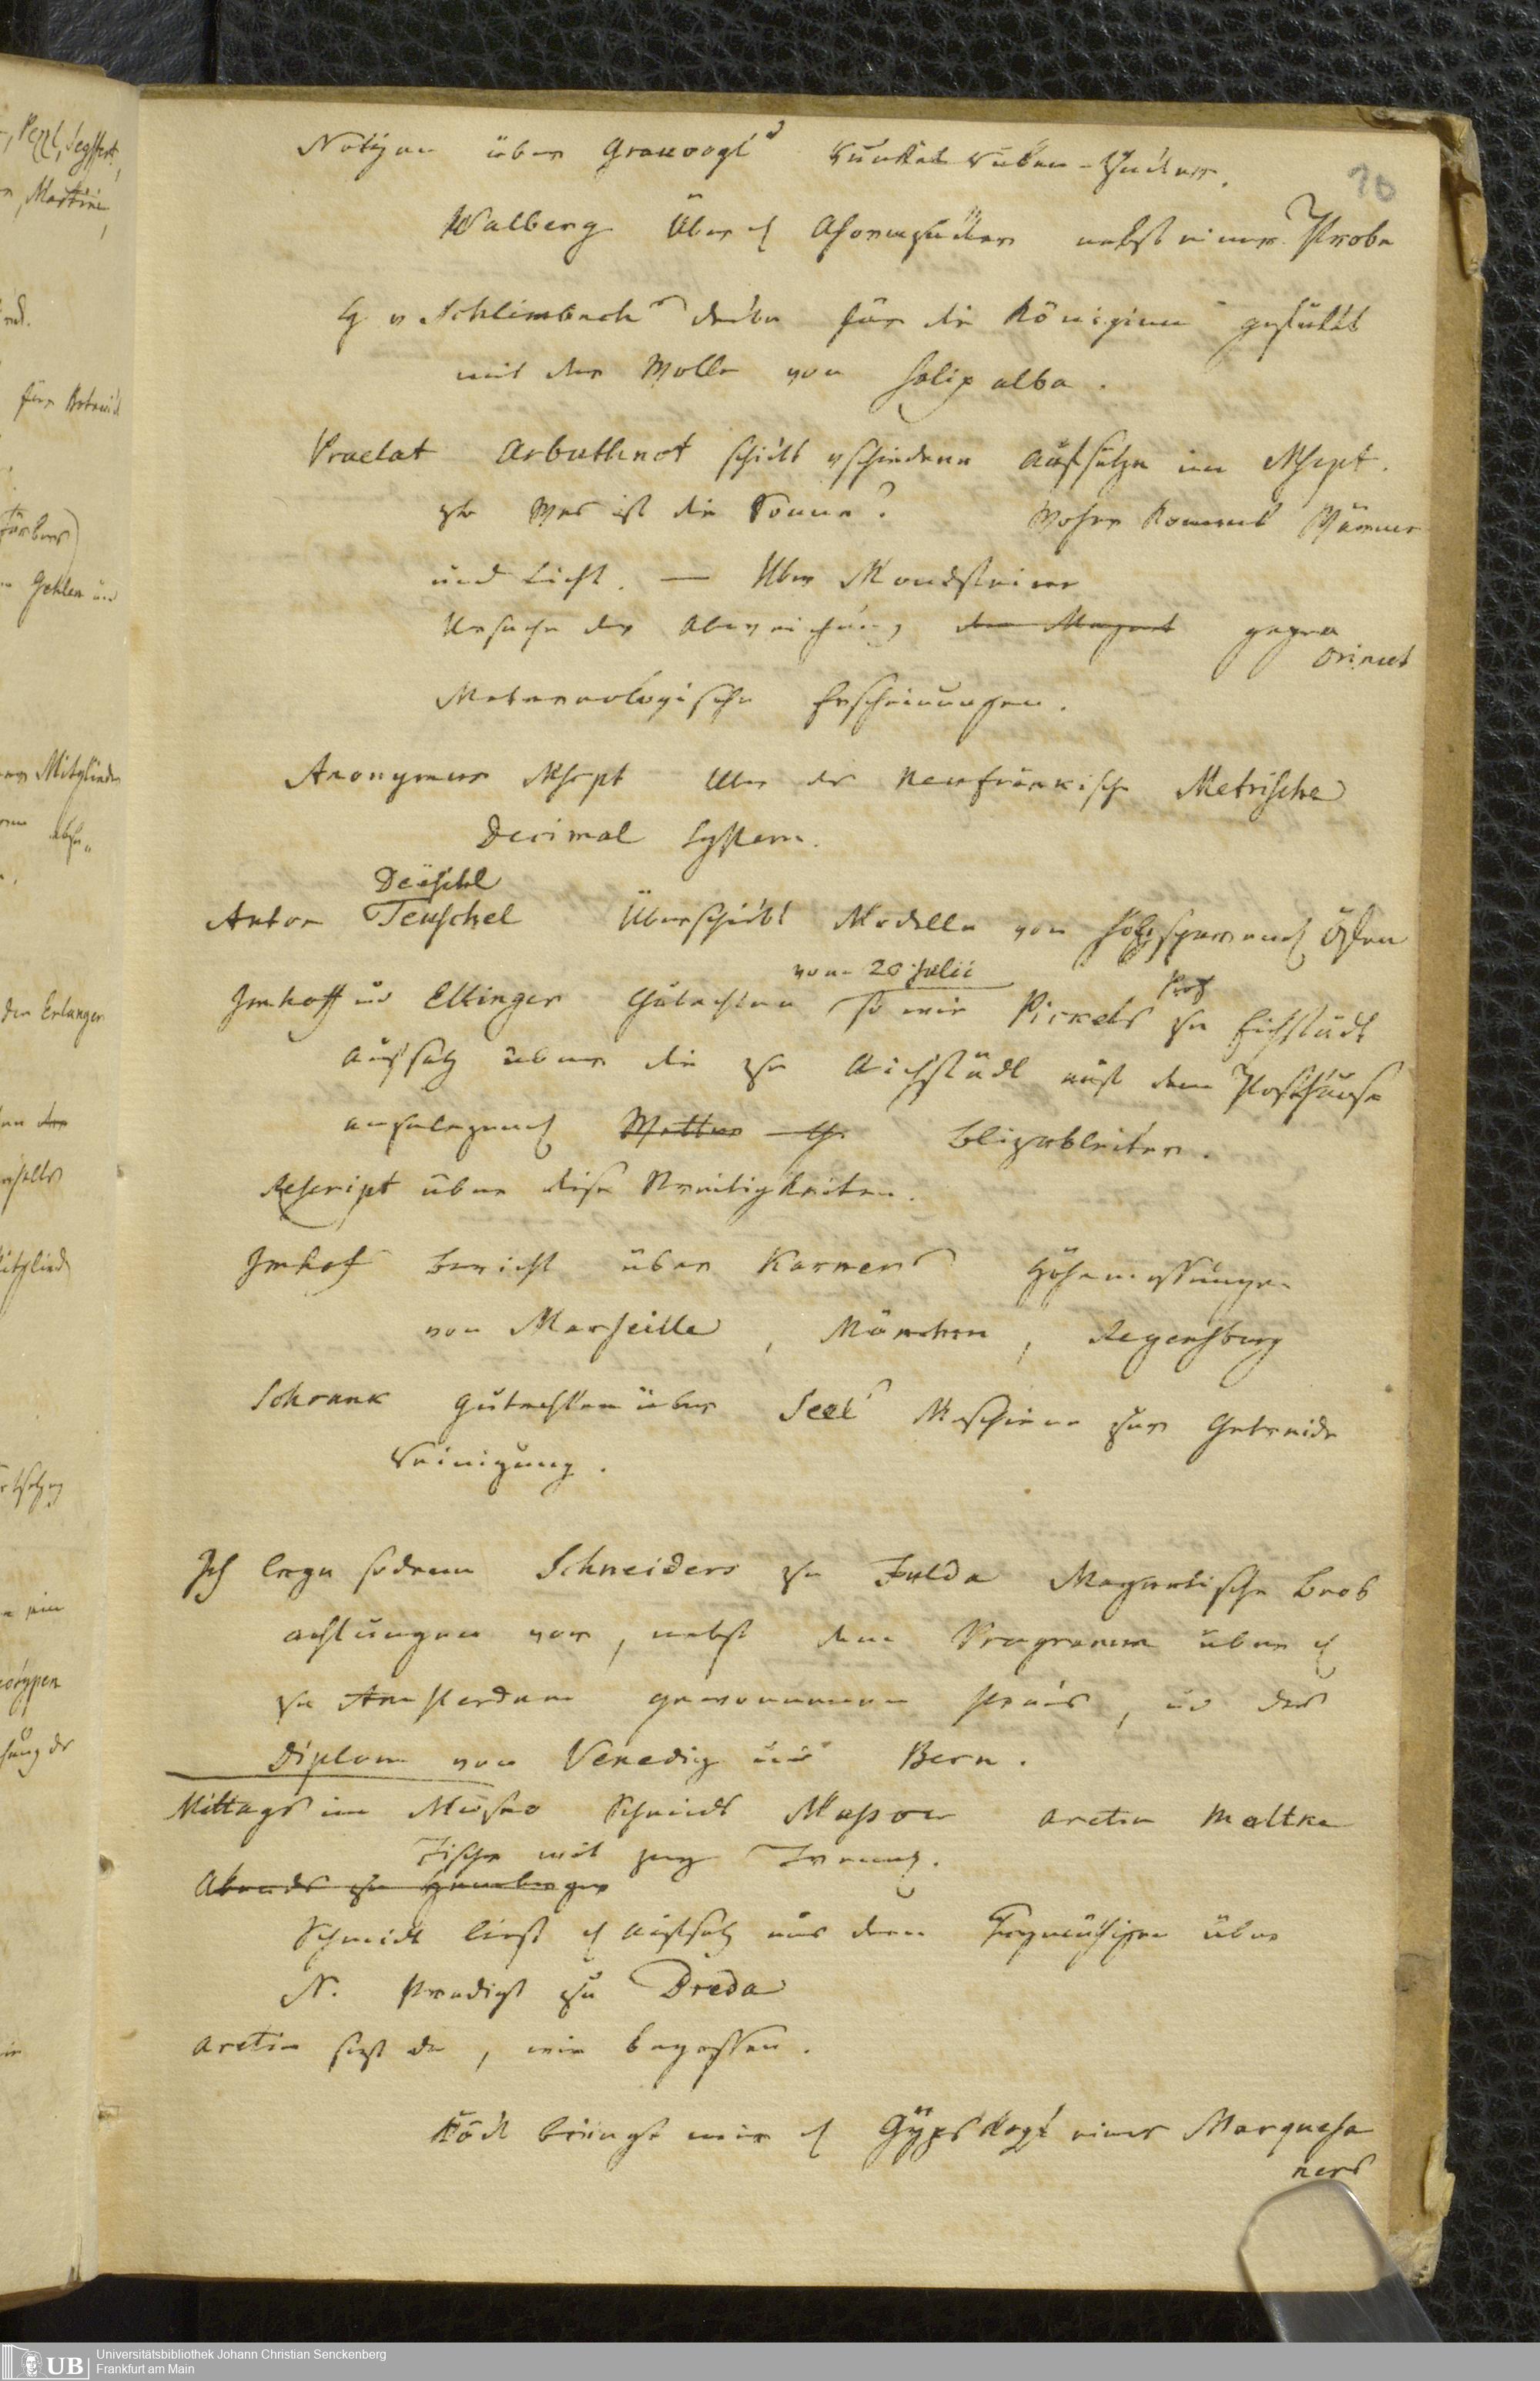 Notizen über Grauvogl's Runkel Rüben-Zucker.
10
Walberg über Ahornzucker nebst einer Probe
v Schlimbach decke für die Königinn gefüllt
mit der Wolle von Salix alba.
Praelat Arbuthnot schickt vschiedene Aufsätze im Mscpt.
zb Was ist die Sonne? Woher kommt Wärme
und Licht. — Über Mondsteine
Ursache der Abweichung der Magnet gegen
Orient
Metereologische Erscheinungen.
Anonymus Mscpt Über das Neufränkische Metrische
Decimal System.
Deischl
Anton Teuschel Überschickt Modelle von Holzsparend Öfen
vom 20 Julii
Imhoff und Ellinger Gutachten so wie Pickels Prof zu Eichstädt
Aufsatz über die zu Aichstädt auf dem Posthause
anzulegend Wetter Blizableiter.
Rescript über diese Streitigkeiten.
Imhof Bericht über Karners Höhenmessungen
von Marseille, München, Regensburg
Schrank Gutachten über Seel's Maschine zur Getreide
Reinigung.
Ich lege sodann Schneiders zu Fulda Magnetische Beob
achtungen vor, nebst dem Programm über
zu Amsterdam gewonnenen Preis, und das
Diplom von Venedig und Bern.
Mittags im Museo Schmidt Massow Aretin Moltke
Tische mit
Abends zu
Schmidt liest Aufsatz aus dem Freymüthigen über
N. Predigt zu Breda
Aretin sizt da, wie begossen.
Köck bringt mir Gypskopf eines Marquesa
ners
UB
Universitätsbibliothek Johann Christian Senckenberg
Frankfurt am Main